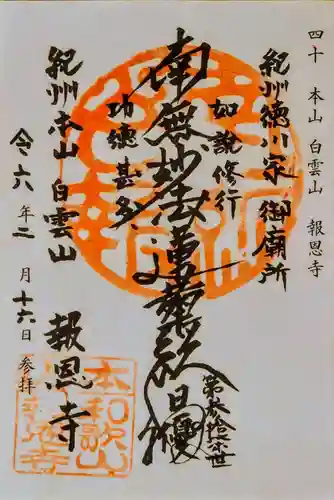 四十 本山 白雲山 報恩寺
紀州徳川家 御廟所
如説修行
南無妙法蓮華経
日
功徳甚多
紀州本山 白雲山
報恩寺
令六年二月十六日 参拝
本和歌山